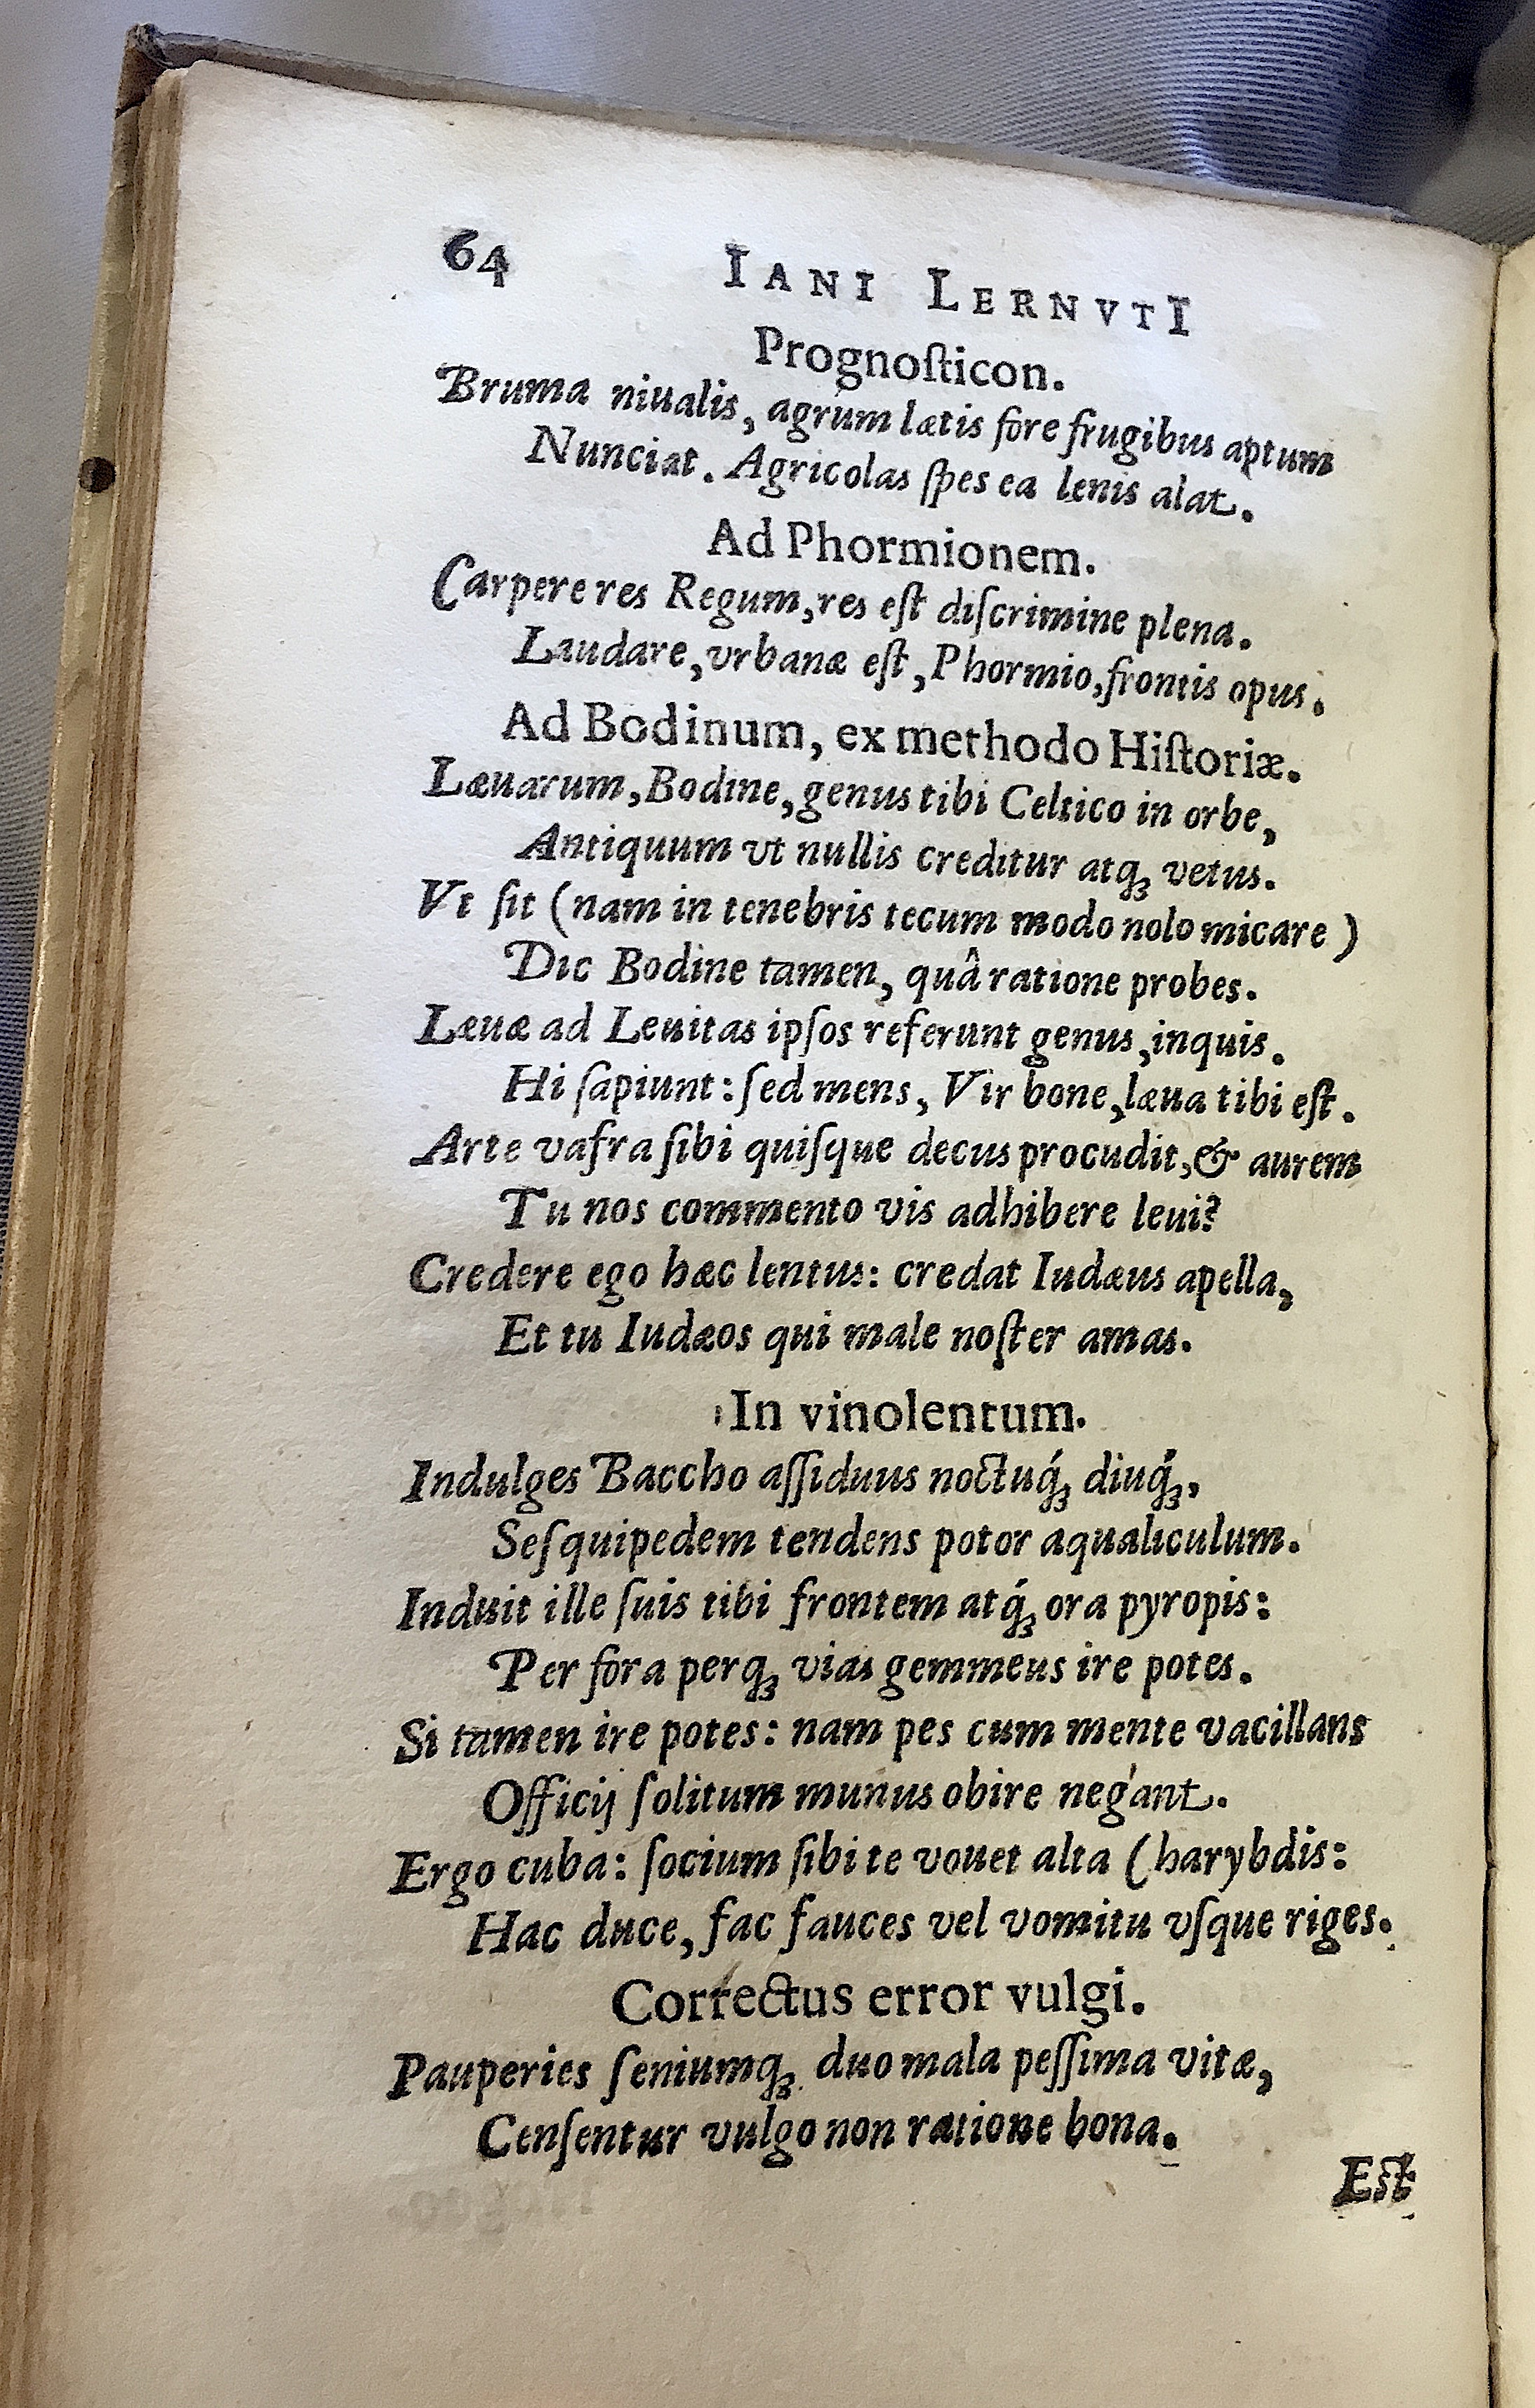 64 IANI LERNVTI
Prognoſticon.
Bruma niualis, agrum lætis fore frugibus aptum
Nunciat. Agricolas ſpes ea lenis alat.
Ad Phormionem.
Carpere res Regum, res eſt diſcrimine plena.
Laudare, vrbanæ eſt, Phormio, frontis opus.
Ad Bodinum, ex methodo Hiſtoriæ.
Læuarum, Bodine, genus tibi Celtico in orbe,
Antiquum vt nullis creditur atqꝫ vetus.
Vt ſit (nam in tenebris tecum modo nolo micare)
Dic Bodine tamen, quâ ratione probes.
Læuæ ad Leuitas ipſos referunt genus, inquis.
Hi ſapiunt: ſed mens, Vir bone, læua tibi eſt.
Arte vafra ſibi quiſque decus procudit, & aurem
Tu nos commento vis adhibere leui?
Credere ego hæc lentus: credat Iudæus apella,
Et tu Iudæos qui male noſter amas.
In vinolentum.
Indulges Baccho aſſiduus noctuq́ꝫ diuq́ꝫ,
Seſquipedem tendens potor aqualiculum.
Induit ille ſuis tibi frontem atq́ꝫ ora pyropis:
Per fora perqꝫ vias gemmeus ire potes.
Si tamen ire potes: nam pes cum mente vacillans
Officij ſolitum munus obire negant.
Ergo cuba: ſocium ſibi te vouet alta Charybdis:
Hac duce, fac fauces vel vomitu vſque riges.
Correctus error vulgi.
Pauperies ſeniumqꝫ duo mala peſſima vitæ,
Cenſentur vulgo non ratione bona.
Eſt